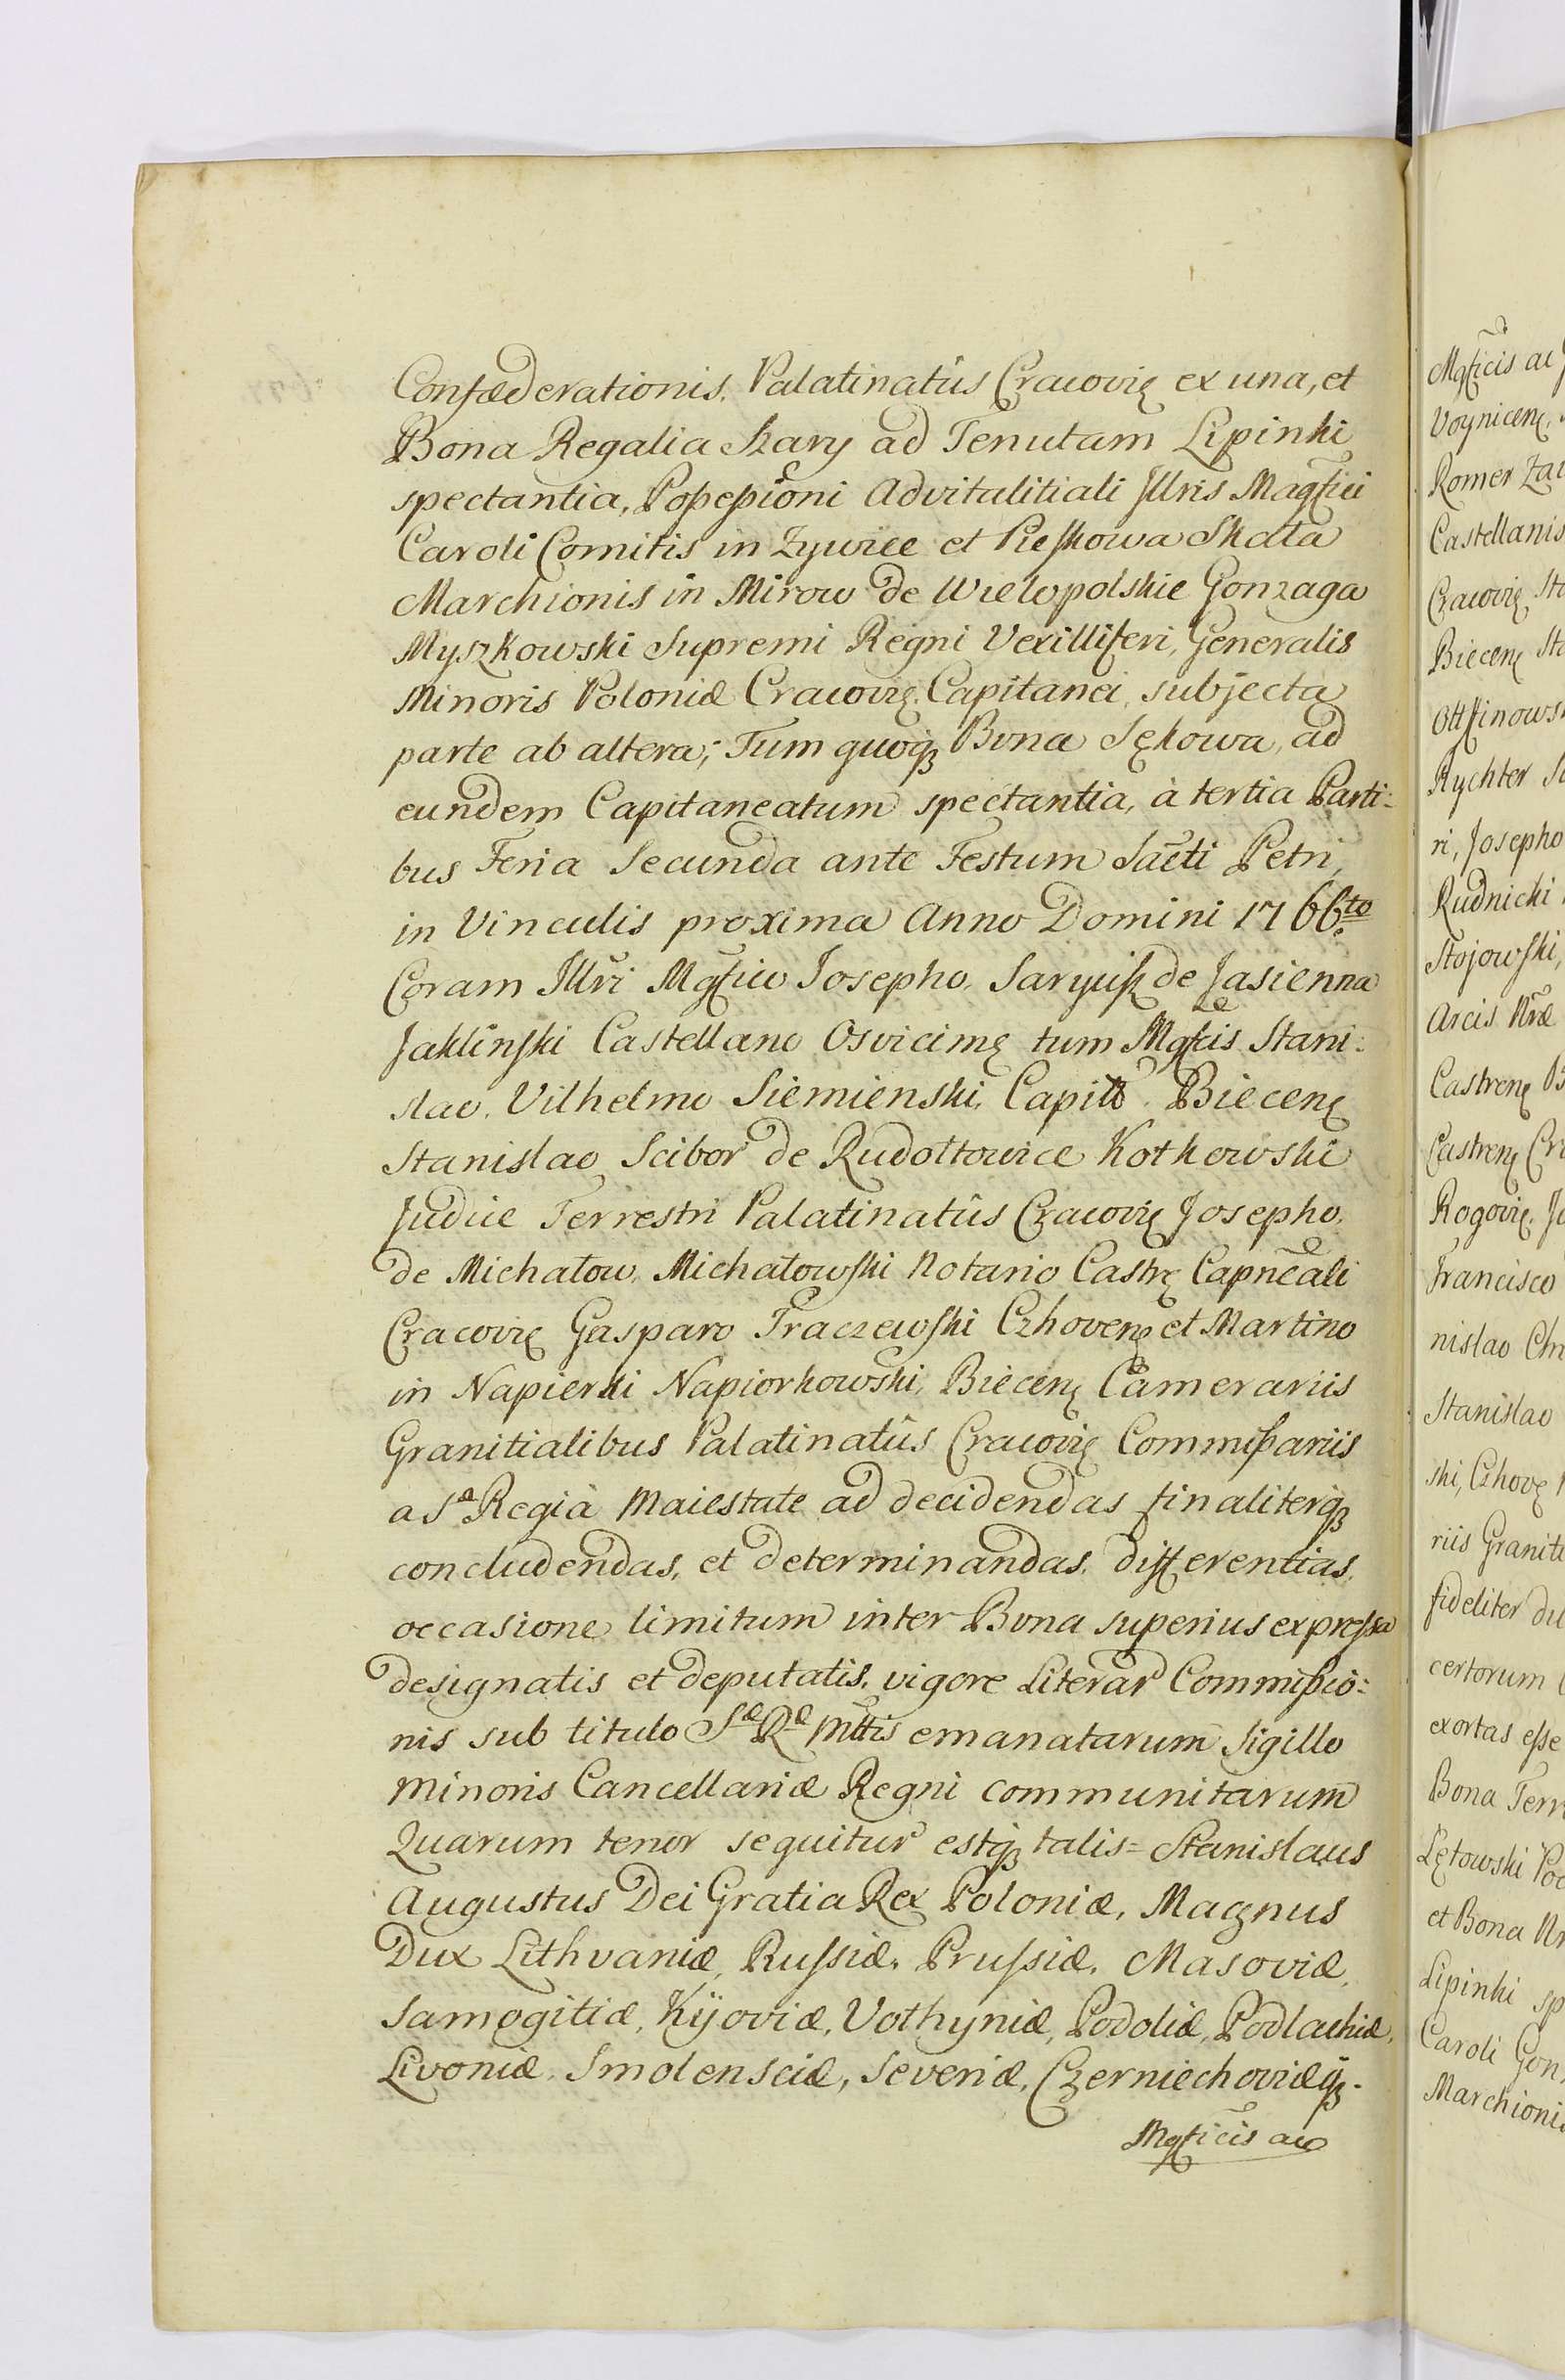 Confæderationis. Palatinatûs Cracovię ex una, et
Bona Regalia Szary ad Tenutam Lipinki
spectantia, Possessioni Advitalitiali Jllris Magfici
Caroli Comitis in Zywiec et Pieskowa Skała
Marchionis in Mirow de Wielopolskie Gonzaga
Myszkowski Supremi Regni Vexilliferi, Generalis
Minoris Poloniæ Cracovię. Capitanei, subjecta
parte ab altera; Tum quoqꝫ Bona Sękowa, ad
eundem Capitaneatum spectantia, à tertia Parti:
bus Feria Secunda ante Festum Sācti Petri,
in Vinculis proxima Anno Domini 1766.to
Coram Jllri Mgfico Josepho. Saryusz de Jasienna
Jaklinski Castellano Osvicimę tum Mgfcis Stani:
slao. Vilhelmo Siemienski, Capitō. Biecenę
Stanislao Scibor de Rudołtowice Kotkowski
Judice Terrestri Palatinatûs Cracovię Josepho.
de Michałow. Michałowski Notario Castrę Capneali
Cracovię Gasparo Traczewski Czhovenę et Martino
in Napierki Napiorkowski, Biecenę Camerariis
Granitialibus Palatinatûs Cracovię Commissariis
a S.a Regiâ Maiestate ad decidendas finaliterqꝫ
concludendas, et determinandas. differentias.
occasione limitum inter Bona superius expressa
designatis et deputatis. vigore Literar Commissio:
nis sub titulo S.æ R.æ Mttis emanatarum Sigillo
Minoris Cancellariæ Regni communitarum
Quarum tenor sequitur estqꝫ talis = Stanislaus
Augustus Dei Gratia Rex Poloniæ, Magnus
Dux Lithvaniæ, Russiæ. Prussiæ. Masoviæ,
Samogitiæ, Kijoviæ, Vothyniæ, Podoliæ, Podlachiæ,
Livoniæ. Smolensciæ, Severiæ, Czerniechoviæqꝫ.
Mgficis ac
Mgficis ac
Voynicenę,
Romer
Castellanis
Cracovię
Biecenę
Rychter
ri, Josepho
Rudnicki
Stojowski,
Arcis Nræ
Castrenę
Castrenę
Rogovię.
Francisco
nislao
Stanislao
ski, Czhovę
riis
fideliter
certorum
exortas esse
Bona
Lętowski
et Bona
Lipinki
Caroli